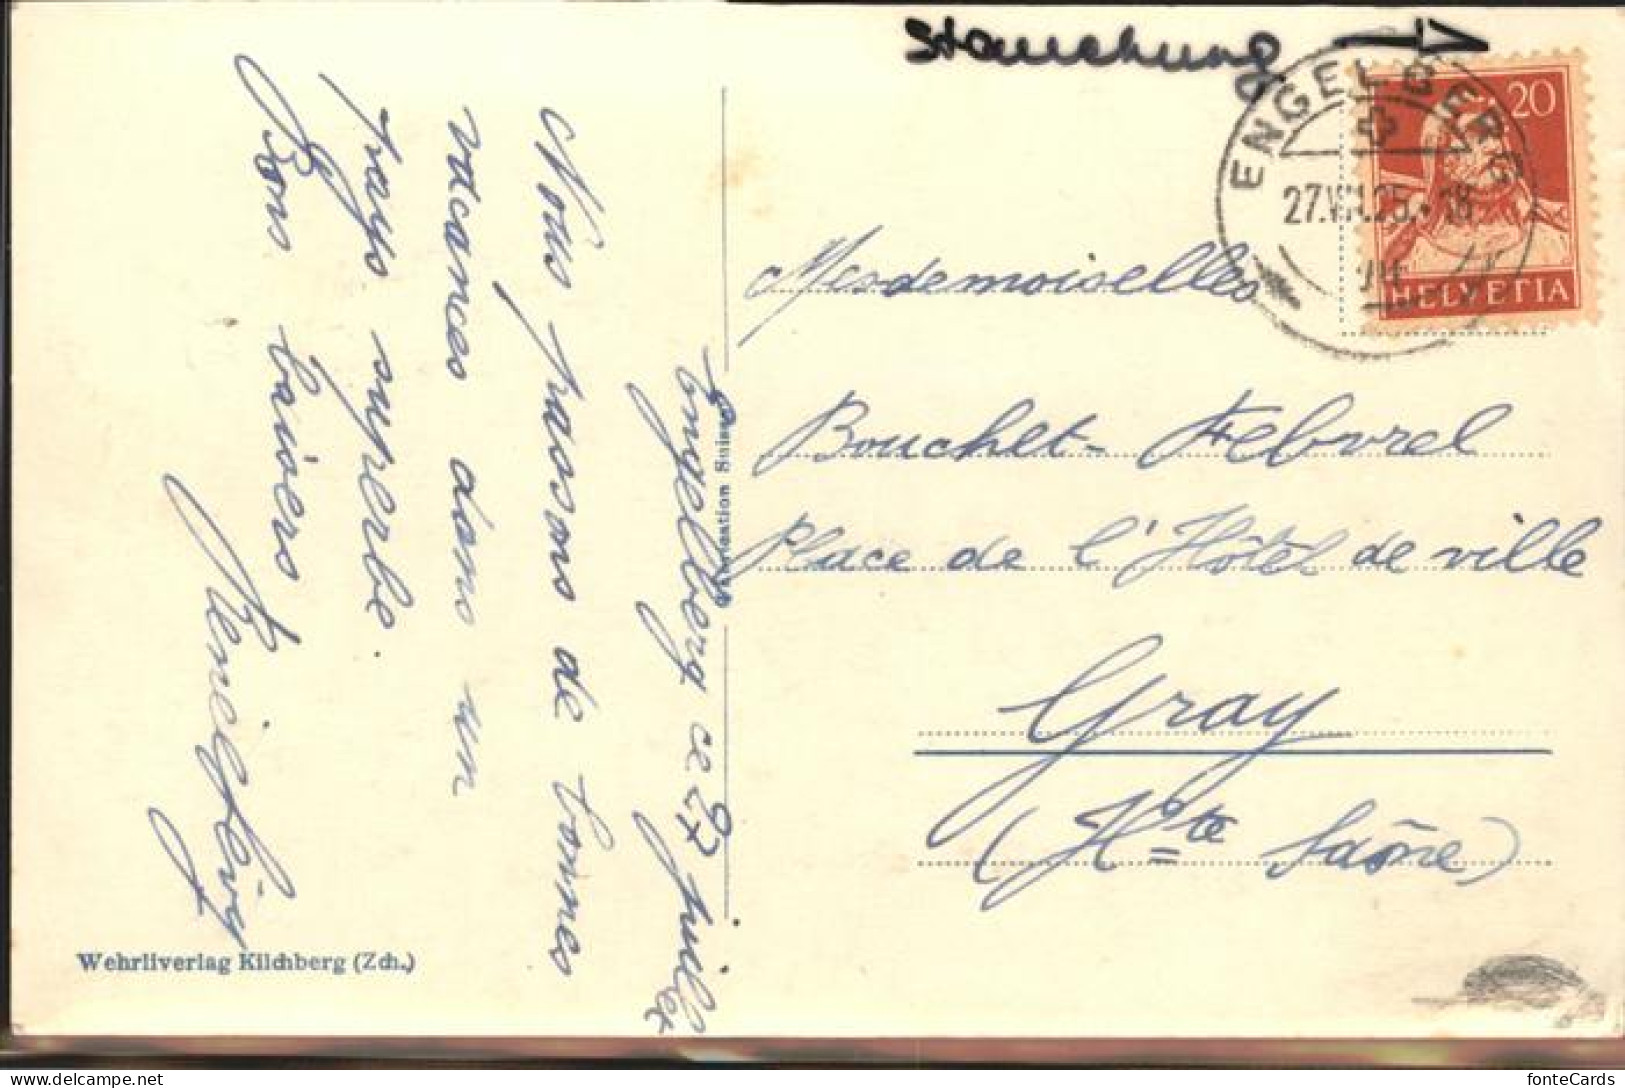 Stauchung
ENGELBERG
27.VII.25.-18
20
HELVETIA
Mesdemoiselles
Bouchet-Febvrel
Place de l'Hôtel de ville
Gray
(Hte Saône)
Engelberg ce 27 juillet
Nous passons de bonnes
vacances dans un
pays superbe.
Bons baisers
Wehrliverlag Kilchberg (Zch.)
fonteCards